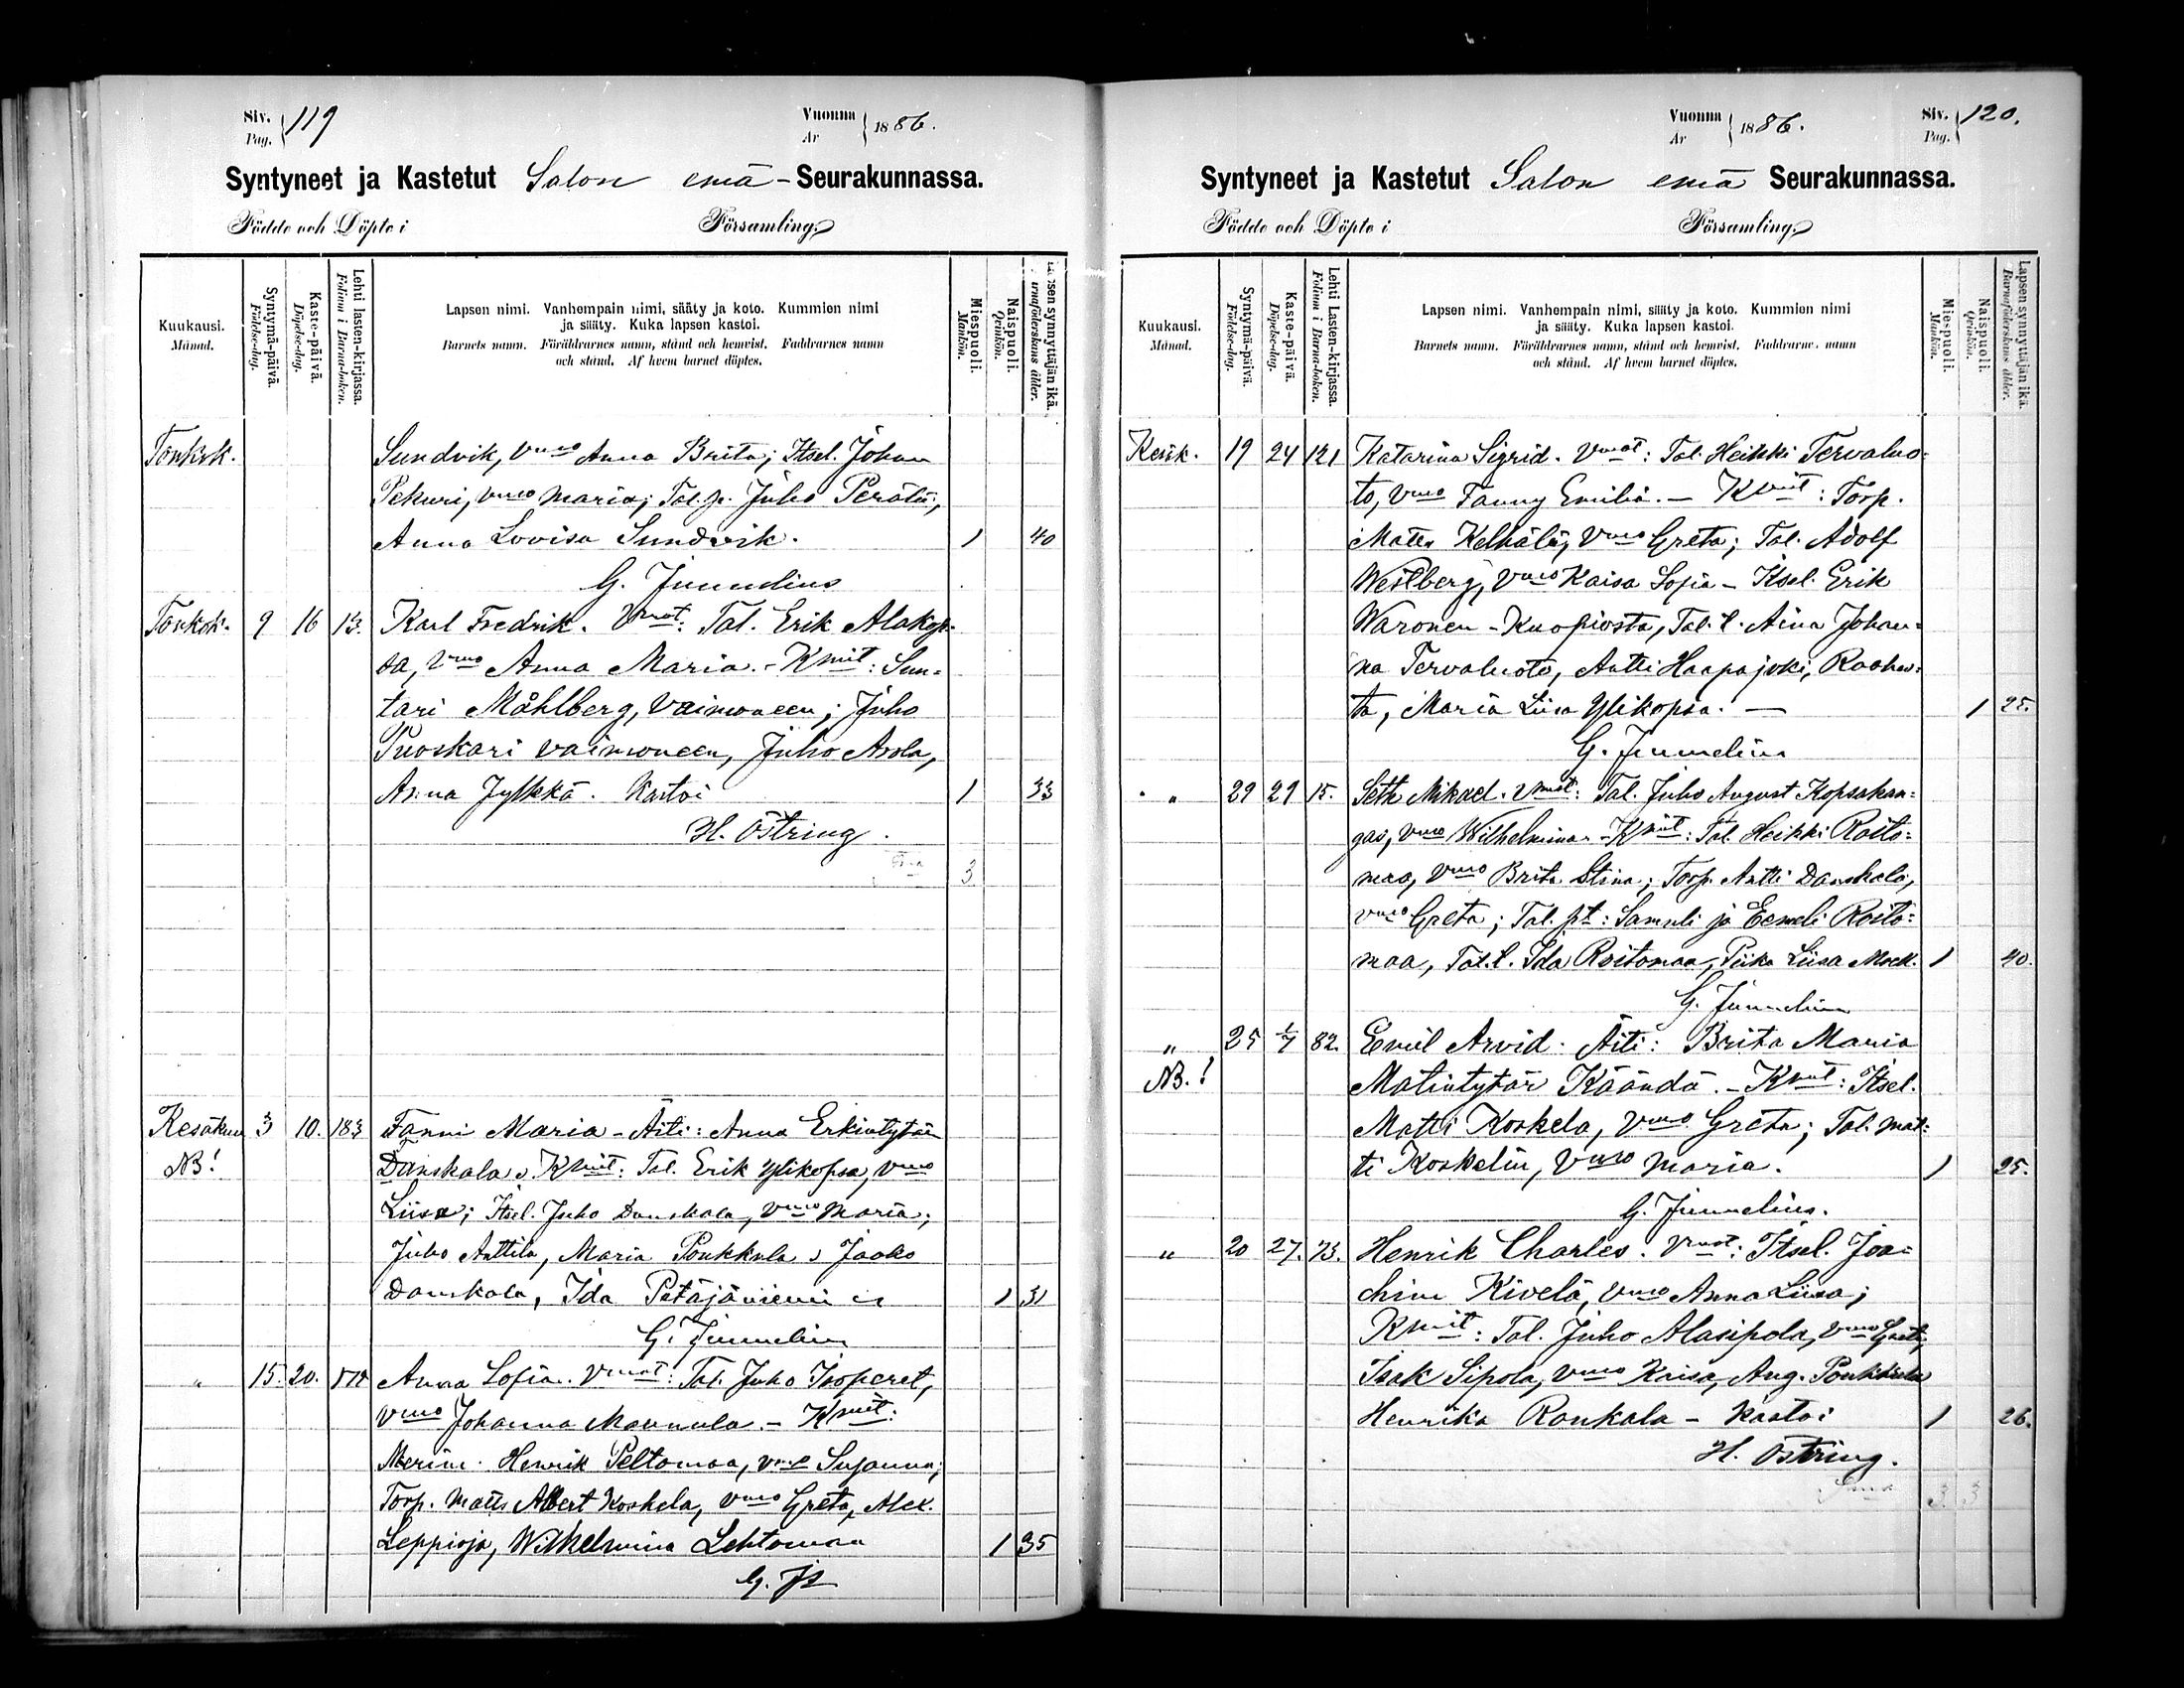 Siv. Pag. 119
Vuonna År 1886.
Syntyneet ja Kastetut Salon emä-Seurakunnassa.
Födde och Döpte i Församling.
Kuukausi. Månad.
Syntymä-päivä. Födelse-dag.
Kaste-päivä. Döpelse-dag.
Lehti lasten-kirjassa. Folium i Barna-boken.
Lapsen nimi. Vanhempain nimi, sääty ja koto. Kummien nimi
ja sääty. Kuka lapsen kastoi.
Barnets namn. Föräldrarnes namn, stånd och hemvist. Faddrarnes namn
och stånd. Af hvem barnet döptes.
Miespuoli. Mankön.
Naispuoli. Qvinkön.
Lapsen synnyttäjän ikä. Barnaföderskans ålder.
Toukok. Sundvik, vmo Anna Brita; Itsel. Johan
Pekuri, vmo Maria; Tal.p. Juho Perälä,
Anna Lovisa Sundvik. 1 40
G. Junnelius
Toukok. 9 16 13. Karl Fredrik. Vmat: Tal. Erik Alakop-
sa, vmo Anna Maria. - Kmit: Sun-
tari Måhlberg, vaimoneen; Juho
Puoskari vaimoneen, Juho Asola,
Anna Jylkkä. Kastoi 1 33
H. Östring.
3
Kesäkuu 3 10. 183 Fanni Maria - Äiti: Anna Erkintytär
NB! Danskala. Kmit: Tal. Erik Ylikopsa, vmo
Liisa; Itsel. Juho Danskala, vmo Maria;
Juho Anttila, Maria Poukkula, Jaako
Danskala, Ida Petäjäniemi 1 31
G. Junnelius
" 15. 20. Anna Sofia. Vmat: Tal. Juho Isoperet,
vmo Johanna Mannula. - Kmit:
Merim. Henrik Peltomaa, vmo Susanna;
Torp. Matts Albert Koskela, vmo Greta, Alex.
Leppioja, Wilhelmina Lehtomaa 1 35
G. Js
Vuonna År 1886.
Siv. Pag. 120.
Syntyneet ja Kastetut Salon emä Seurakunnassa.
Födde och Döpte i Församling.
Kuukausi. Månad.
Syntymä-päivä. Födelse-dag.
Kaste-päivä. Döpelse-dag.
Lehti Lasten-kirjassa. Folium i Barna-boken.
Lapsen nimi. Vanhempain nimi, sääty ja koto. Kummien nimi
ja sääty. Kuka lapsen kastoi.
Barnets namn. Föräldrarnes namn, stånd och hemvist. Faddrarnes namn
och stånd. Af hvem barnet döptes.
Miespuoli. Mankön.
Naispuoli. Qvinkön.
Lapsen synnyttäjän ikä. Barnaföderskans ålder.
Kesäk. 19 24 121 Katarina Sigrid. Vmat: Tal. Heikki Tervaluo-
to, vmo Fanny Emilia. - Kmit: Torp.
Matts Kelhälä, vmo Greta; Tal. Adolf
Westberg, vmo Kaisa Sofia - Itsel. Erik
Waronen - Kuopiosta, Tal. t. Aina Johan-
na Tervaluoto, Antti Haapajoki, Raahes-
ta, Maria Liisa Ylikopsa. 1 25.
G. Junnelius
" 29 29 15. Seth Mikael. Vmat: Tal. Juho August Kopsakan-
gas, vmo Wilhelmina - Kmit: Tal. Heikki Roito-
maa, vmo Brita Stina; Torp. Antti Danskala,
vmo Greta; Tal. pt: Samuli ja Eemeli Roito-
maa, Tal. t. Ida Roitomaa, Piika Liisa 1 40.
G. Junnelius
" 25 1/7 82. Emil Arvid. Äiti: Brita Maria
NB.! Matintytär Kääntä. - Kmit: Itsel.
Matti Koskela, vmo Greta; Tal. Mat-
ti Koskelin, vmo Maria. 1 25.
G. Junnelius.
" 20 27. 73. Henrik Charles. Vmat: Itsel. Joa-
chim Kivelä, vmo Anna Liisa;
Kmit: Tal. Juho Alasipola, vmo Greta,
Isak Sipola, vmo Kaisa, Aug. Poukkula
Henrika Ronkala - Kastoi 1 26.
H. Östring.
Sma 3 3